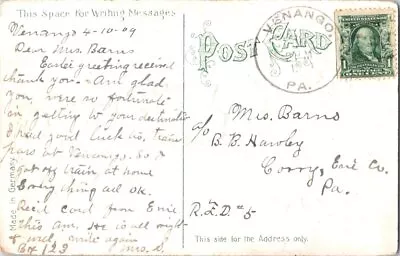 This Space for Writing Messages
Venango 4-10-09
Dear Mrs. Barns
Easter greeting received
thank you. Am glad
you were so fortunate
in getting to your destination
I had good luck as train
pass at Venango. So I
got off train at home
Everything all OK.
Rec'd card from Erie
this am. He is all right
& well, write again
Bx 123 Mrs. S.
Made in Germany
POST CARD
VENANGO
PA.
1
Mrs. Barns
c/o
B. B. Hawley
Corry, Erie Co.
Pa.
R.F.D. #5
This side for the Address only.